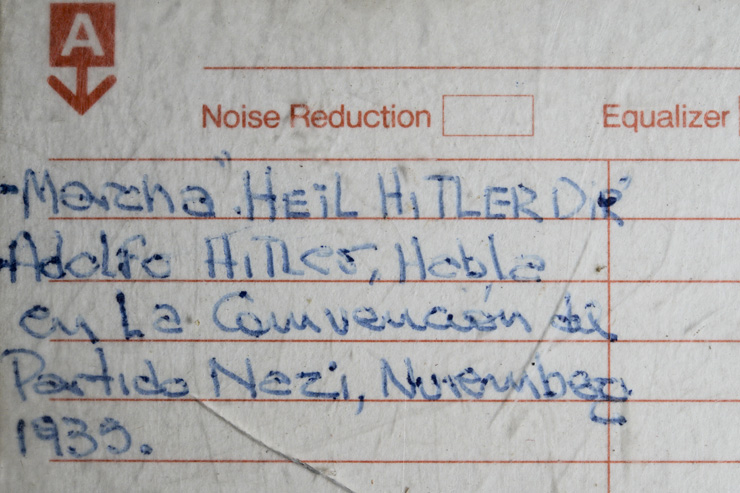 A
Noise Reduction Equalizer
-Marcha "HEIL HITLER DIR"
-Adolfo Hitler, Habla
en La Convención del
Partido Nazi, Nuremberg
1935.